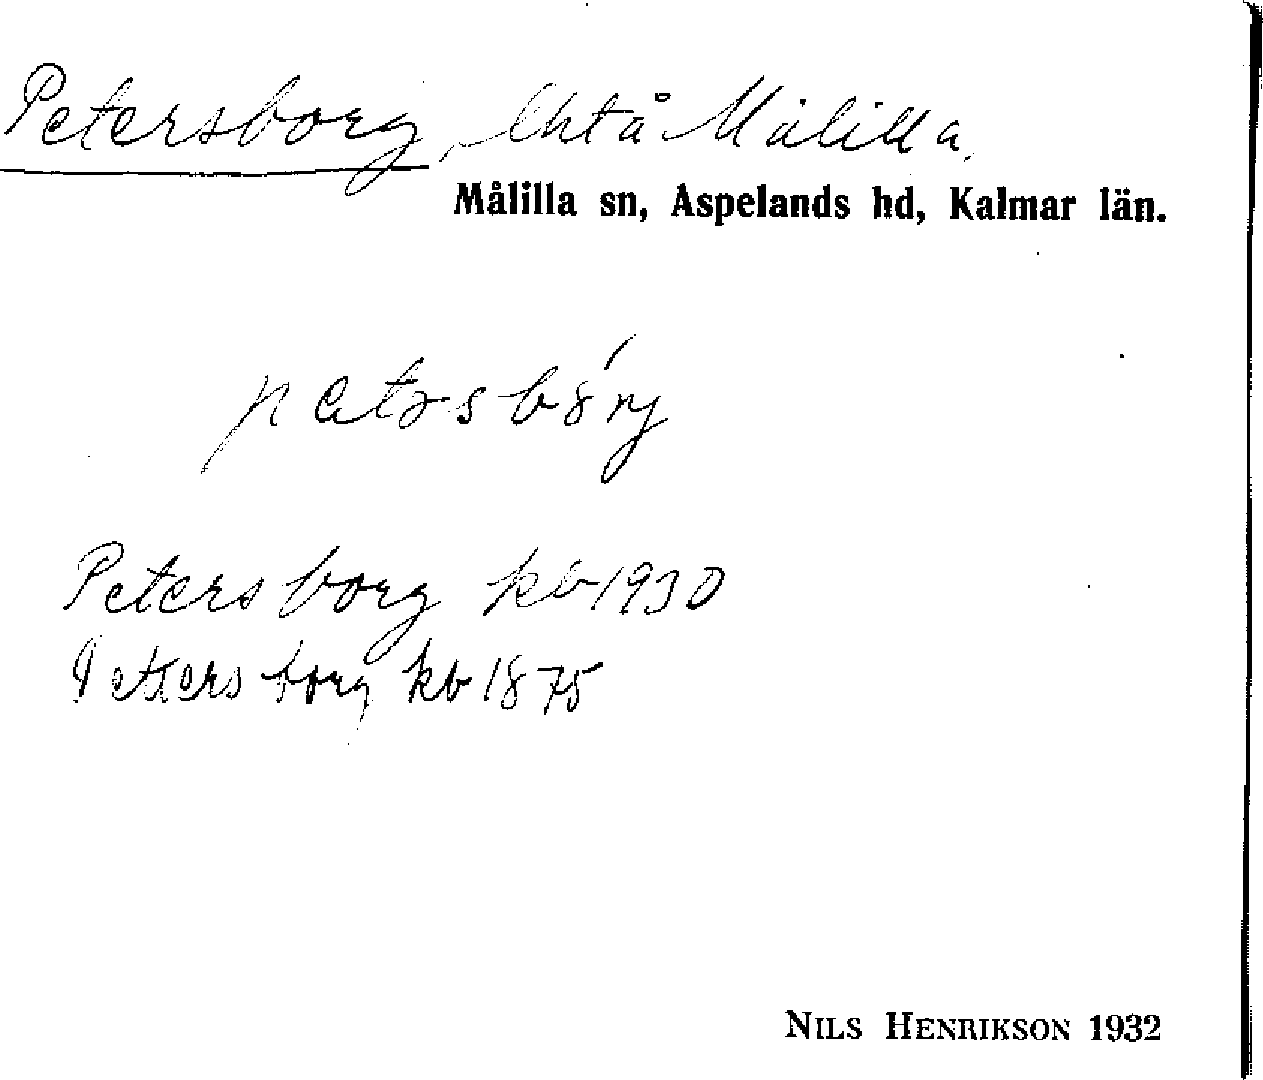 Petersborg, lht å Målilla.
Målilla sn, Aspelands hd, Kalmar län.
Petersborg kb 1930
Pettersborg kb 1875
NILS HENRIKSON 1932